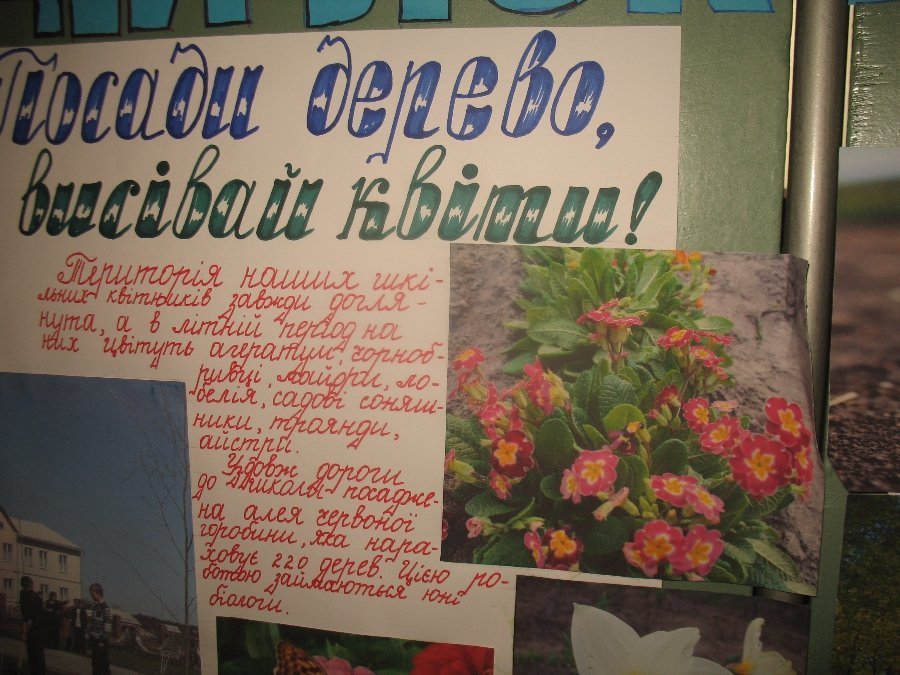 Посади дерево,
висівай квіти!
Територія наших шкі-
льних квітників завжди догля-
нута, а в літній період на
них цвітуть агератум, чорноб-
ривці, майори, ло-
белія, садові соняш-
ники, троянди,
айстри.
Удовж дороги
до школи посадже-
на алея червоної
горобини, яка нара-
ховує 220 дерев. Цією ро-
ботою займаються юні
біологи.